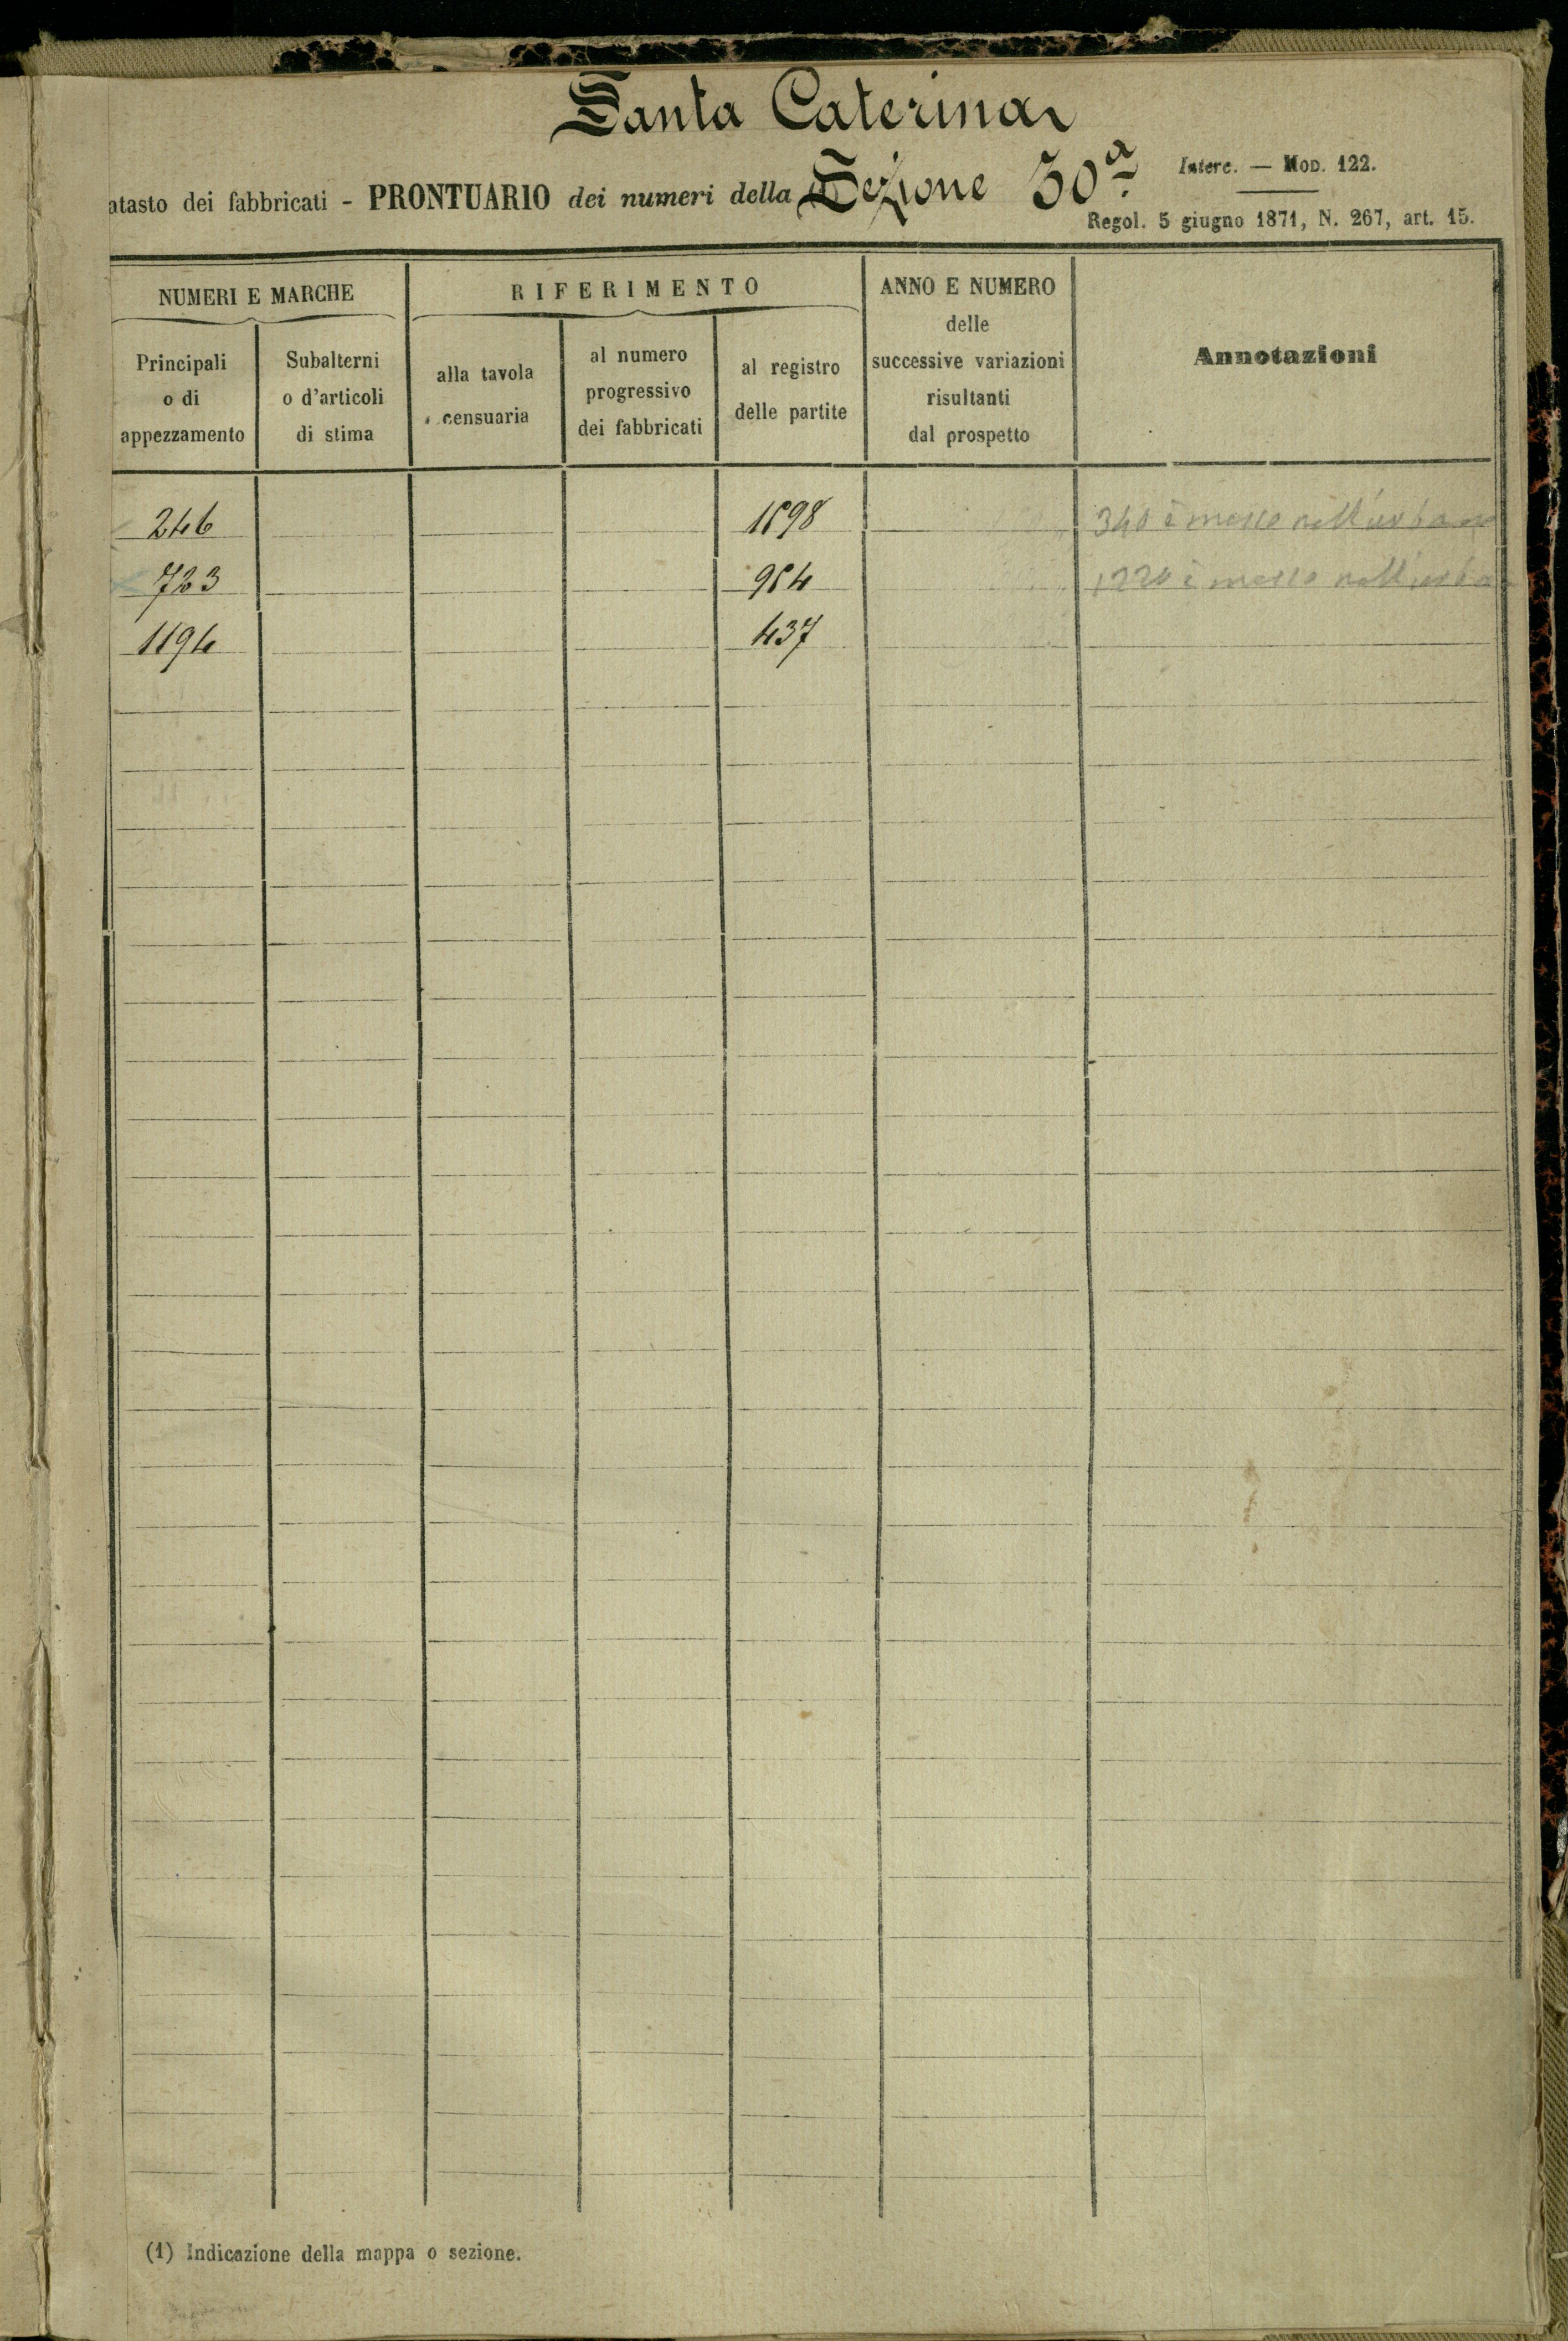 Santa Caterina
atasto dei fabbricati - PRONTUARIO dei numeri della Sezione 30ª
Interc. — Mod. 122.
Regol. 5 giugno 1871, N. 267, art. 15.
NUMERI E MARCHE
RIFERIMENTO
ANNO E NUMERO
delle
successive variazioni
risultanti
dal prospetto
Annotazioni
Principali
o di
appezzamento
Subalterni
o d'articoli
di stima
alla tavola
censuaria
al numero
progressivo
dei fabbricati
al registro
delle partite
246 1898 340 è messo nell'urbano
723 954 1220 è messo nell'urba
1194 437
(1) Indicazione della mappa o sezione.